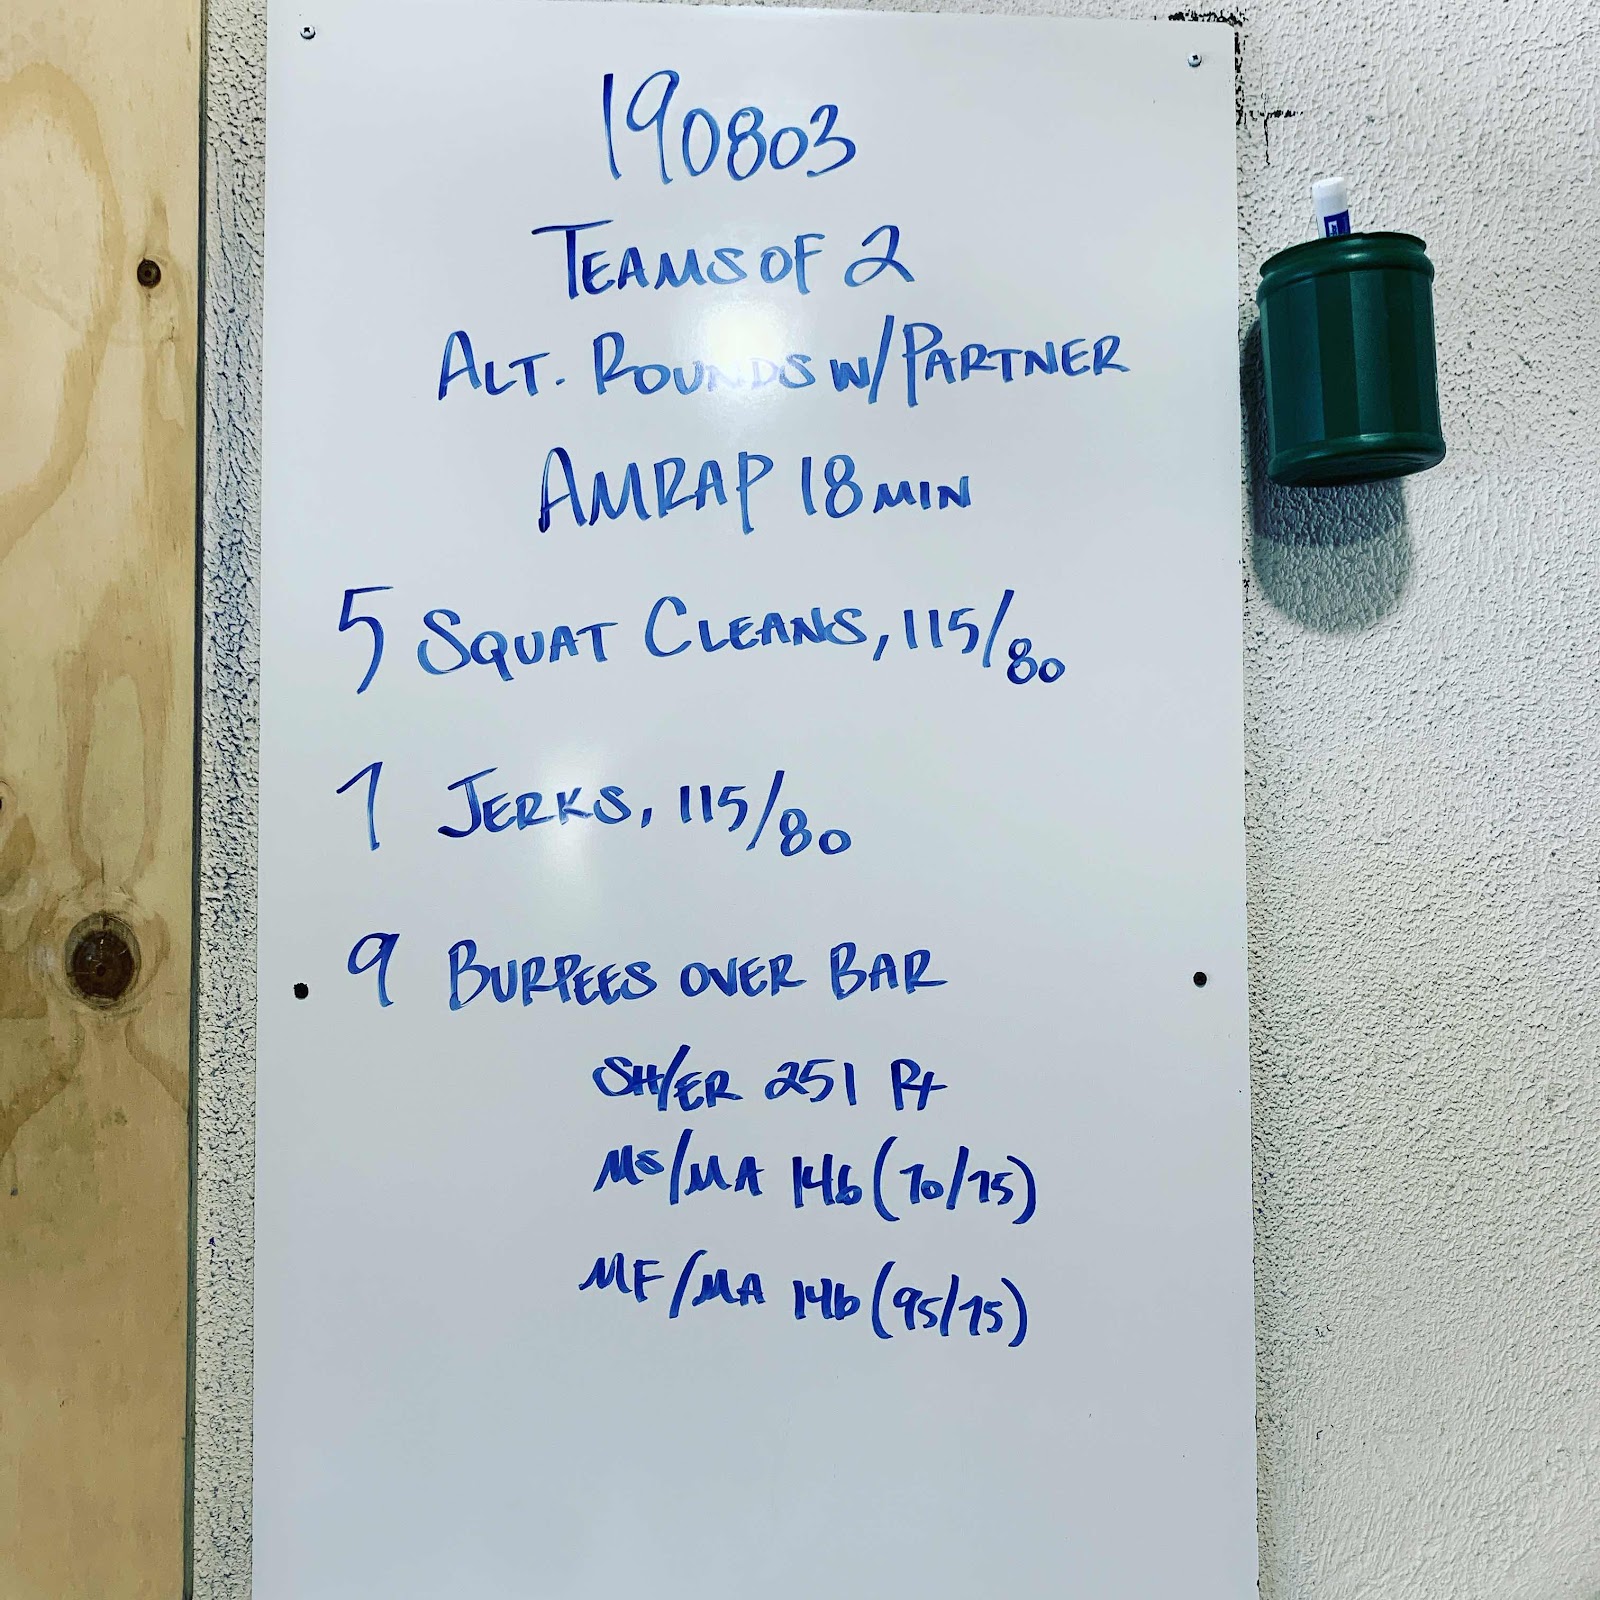 190803
TEAMS OF 2
ALT. ROUNDS W/PARTNER
AMRAP 18 MIN
5 SQUAT CLEANS, 115/80
7 JERKS, 115/80
9 BURPEES OVER BAR
SH/ER 251 Rx
MS/MA 146 (70/75)
MF/MA 146 (95/75)